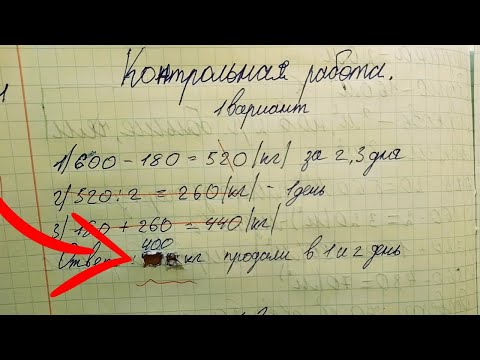 Контрольная работа.
1 вариант
1) 600 - 180 = 520 (кг) за 2, 3 дня
2) 520 : 2 = 260 (кг) - 1 день
3) 180 + 260 = 440 (кг)
400
Ответ: кг продали в 1 и 2 день